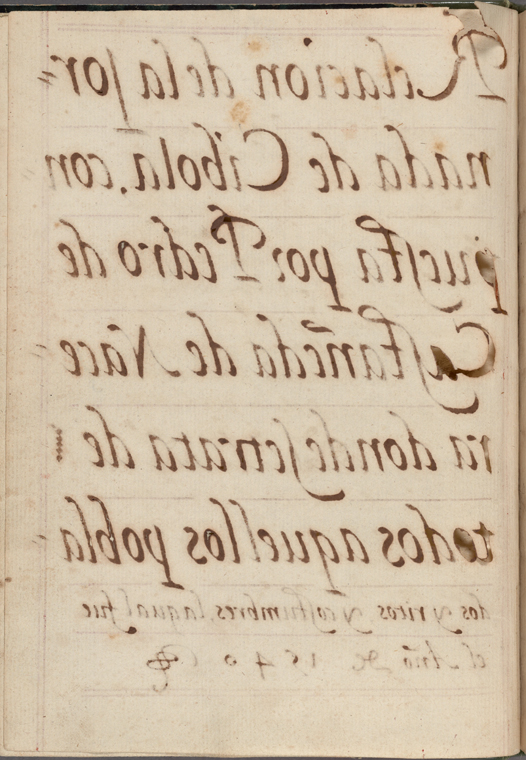 Relacion de la Jor-
nada de Cibola, con
puesta por Pedro de
Castañeda de Nace-
ra donde se trata de
todos aquellos pobla-
dos y ritos, y costumbres, la qual fue
el Año de 1540